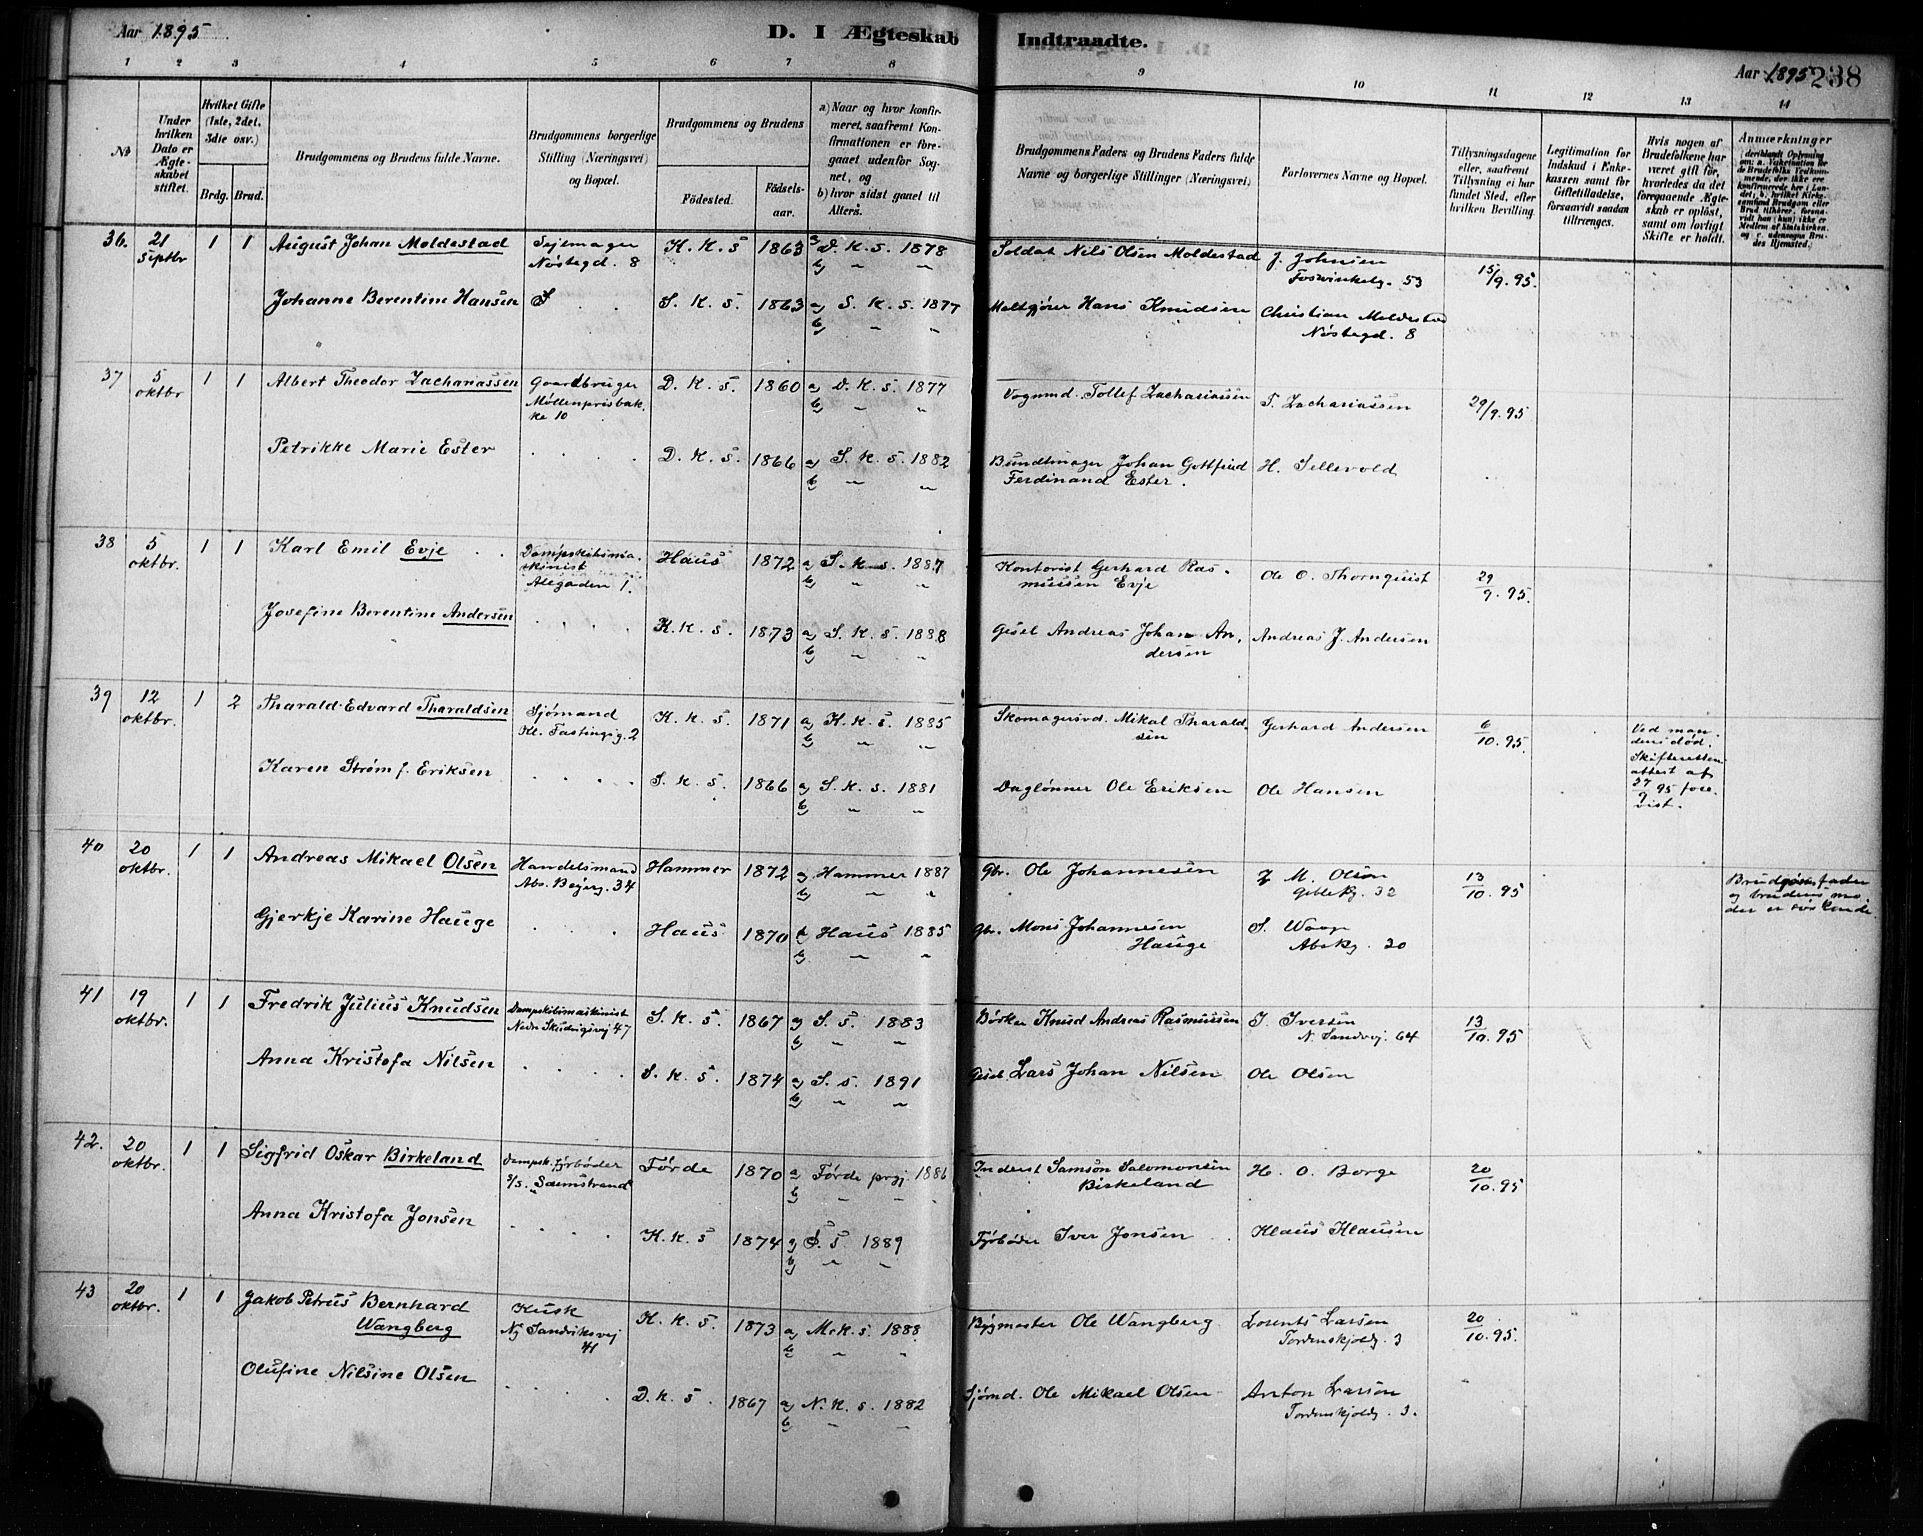 Aar 1895
D. I Ægteskab Indtraadte.
Aar 1895
238
1 2 3 4 5 6 7 8 9 10 11 12 13 14
No
Under hvilken Dato er Ægteskabet stiftet.
Hvilket Gifte (1ste, 2det, 3die osv.)
Brdg. Brud.
Brudgommens og Brudens fulde Navne.
Brudgommens borgerlige Stilling (Næringsvei) og Bopæl.
Brudgommens og Brudens
Fødested.
Fødselsaar.
a) Naar og hvor konfirmeret, saafremt Konfirmationen er foregaaet udenfor Sognet, og
b) hvor sidst gaaet til Alters.
Brudgommens Faders og Brudens Faders fulde Navne og borgerlige Stillinger (Næringsvei)
Forlovernes Navne og Bopæl.
Tillysningsdagene eller, saafremt Tillysning ei har fundet Sted, efter hvilken Bevilling.
Legitimation for Indskud i Enkekassen samt for Giftetilladelse, forsaavidt saadan tiltrænges.
Hvis nogen af Brudefolkene har været gift før, hvorledes da det foregaaende Ægteskab er opløst, samt om lovligt Skifte er holdt.
Anmærkninger
36. 21 Septbr 1 1 August Johan Moldestad Sejlmager Nøstegd. 8 K. K. S 1863 a D. K. S. 1878 Soldat Nils Olsen Moldestad J. Johnsen Fosvinkelg. 53 15/9. 95.
b „ „
Johanne Berentine Hansen S. K. S 1863 a S. K. S. 1877 Maltgjører Hans Knudsen Christian Moldestad Nøstegd. 8
b „ „
37 5 oktbr 1 1 Albert Theodor Zachariassen Gaardbruger Møllenprisbakke 10 D. K. S. 1860 a D. K. S. 1877 Vognmd. Tollef Zachariassen T. Zachariassen 29/9. 95
b „ „
Petrikke Marie Ester D. K. S. 1866 a S. K. S. 1882 Bundtmager Johan Gottfried Ferdinand Ester. H. Sellevold
b „ „
38 5 oktbr. 1 1 Karl Emil Evje Dampskibsmaskinist Alegaden 1. Haus 1872 a S. K. S. 1887 Kontorist Gerhard Rasmussen Evje Ole O. Thornquist 29/9. 95.
b „ „
Josefine Berentine Andersen K. K. S. 1873 a S. K. S. 1888 Gisel Andreas Johan Andersen Andreas J. Andersen
b „ „
39 12 oktbr. 1 2 Tharald Edvard Tharaldsen Sjømand Kl. Fastingsg. 2 K. K. S. 1871 a K. K. S. 1885 Skomagersvd. Mikal Tharaldsen Gerhard Andersen 6/10. 95. Ved mandens død. Skifterettens attest af 27/9 95 forevist.
b „ „
Karen Strøm f. Eriksen S. K. S. 1866 a S. K. S. 1881 Daglønner Ole Eriksen Ole Hansen
b „ „
40 20 oktbr. 1 1 Andreas Mikael Olsen Handelsmand Abs. Beyerg. 34 Hammer 1872 a Hammer 1887 Gbr. Ole Johannesen M. Olsen Geblekg. 32 13/10. 95 Brudgoms fader og brudens moder er søskende
b „ „
Gjerkje Karine Hauge Haus 1870 a Haus 1885 Gbr. Mons Johannesen Hauge S. Waage Abskg. 20
b „ „
41 19 oktbr. 1 1 Fredrik Julius Knudsen Dampskibsmaskinist Nedr Skudvigsvej 47 S. K. S. 1867 a S. S. 1883 Bødker Knud Andreas Rasmussen I. Iversen N. Sandvej. 64 13/10. 95
b „ „
Anna Kristofa Nilsen S. K. S. 1874 a S. S. 1891 Gisel. Lars Johan Nilsen Ole Olsen
b „ „
42. 20 oktbr. 1 1 Sigfrid Oskar Birkeland Dampsk. fyrbøder S/S. „Sæmstrand" Førde 1870 a Førde prgj. 1886 Inderst Samson Salomonsen Birkeland H. O. Borge 20/10. 95
b „ „
Anna Kristofa Jonsen K. K. S 1874 a S. S. 1889 Fyrbøder Iver Jonsen Klaus Klausen
b „ „
43 20 oktbr. 1 1 Jakob Petrus Bernhard Wangberg Kusk Ny Sandviksvej 41 K. K. S. 1873 a M. K. S. 1888 Bygmester Ole Wangberg Lorents Larsen Tordenskjoldg. 3 20/10. 95.
b „ „
Olufine Nilsine Olsen D. K. S. 1867 a N. K. S. 1882 Sjømd. Ole Mikael Olsen Anton Larsen Tordenskjoldg. 3.
b „ „